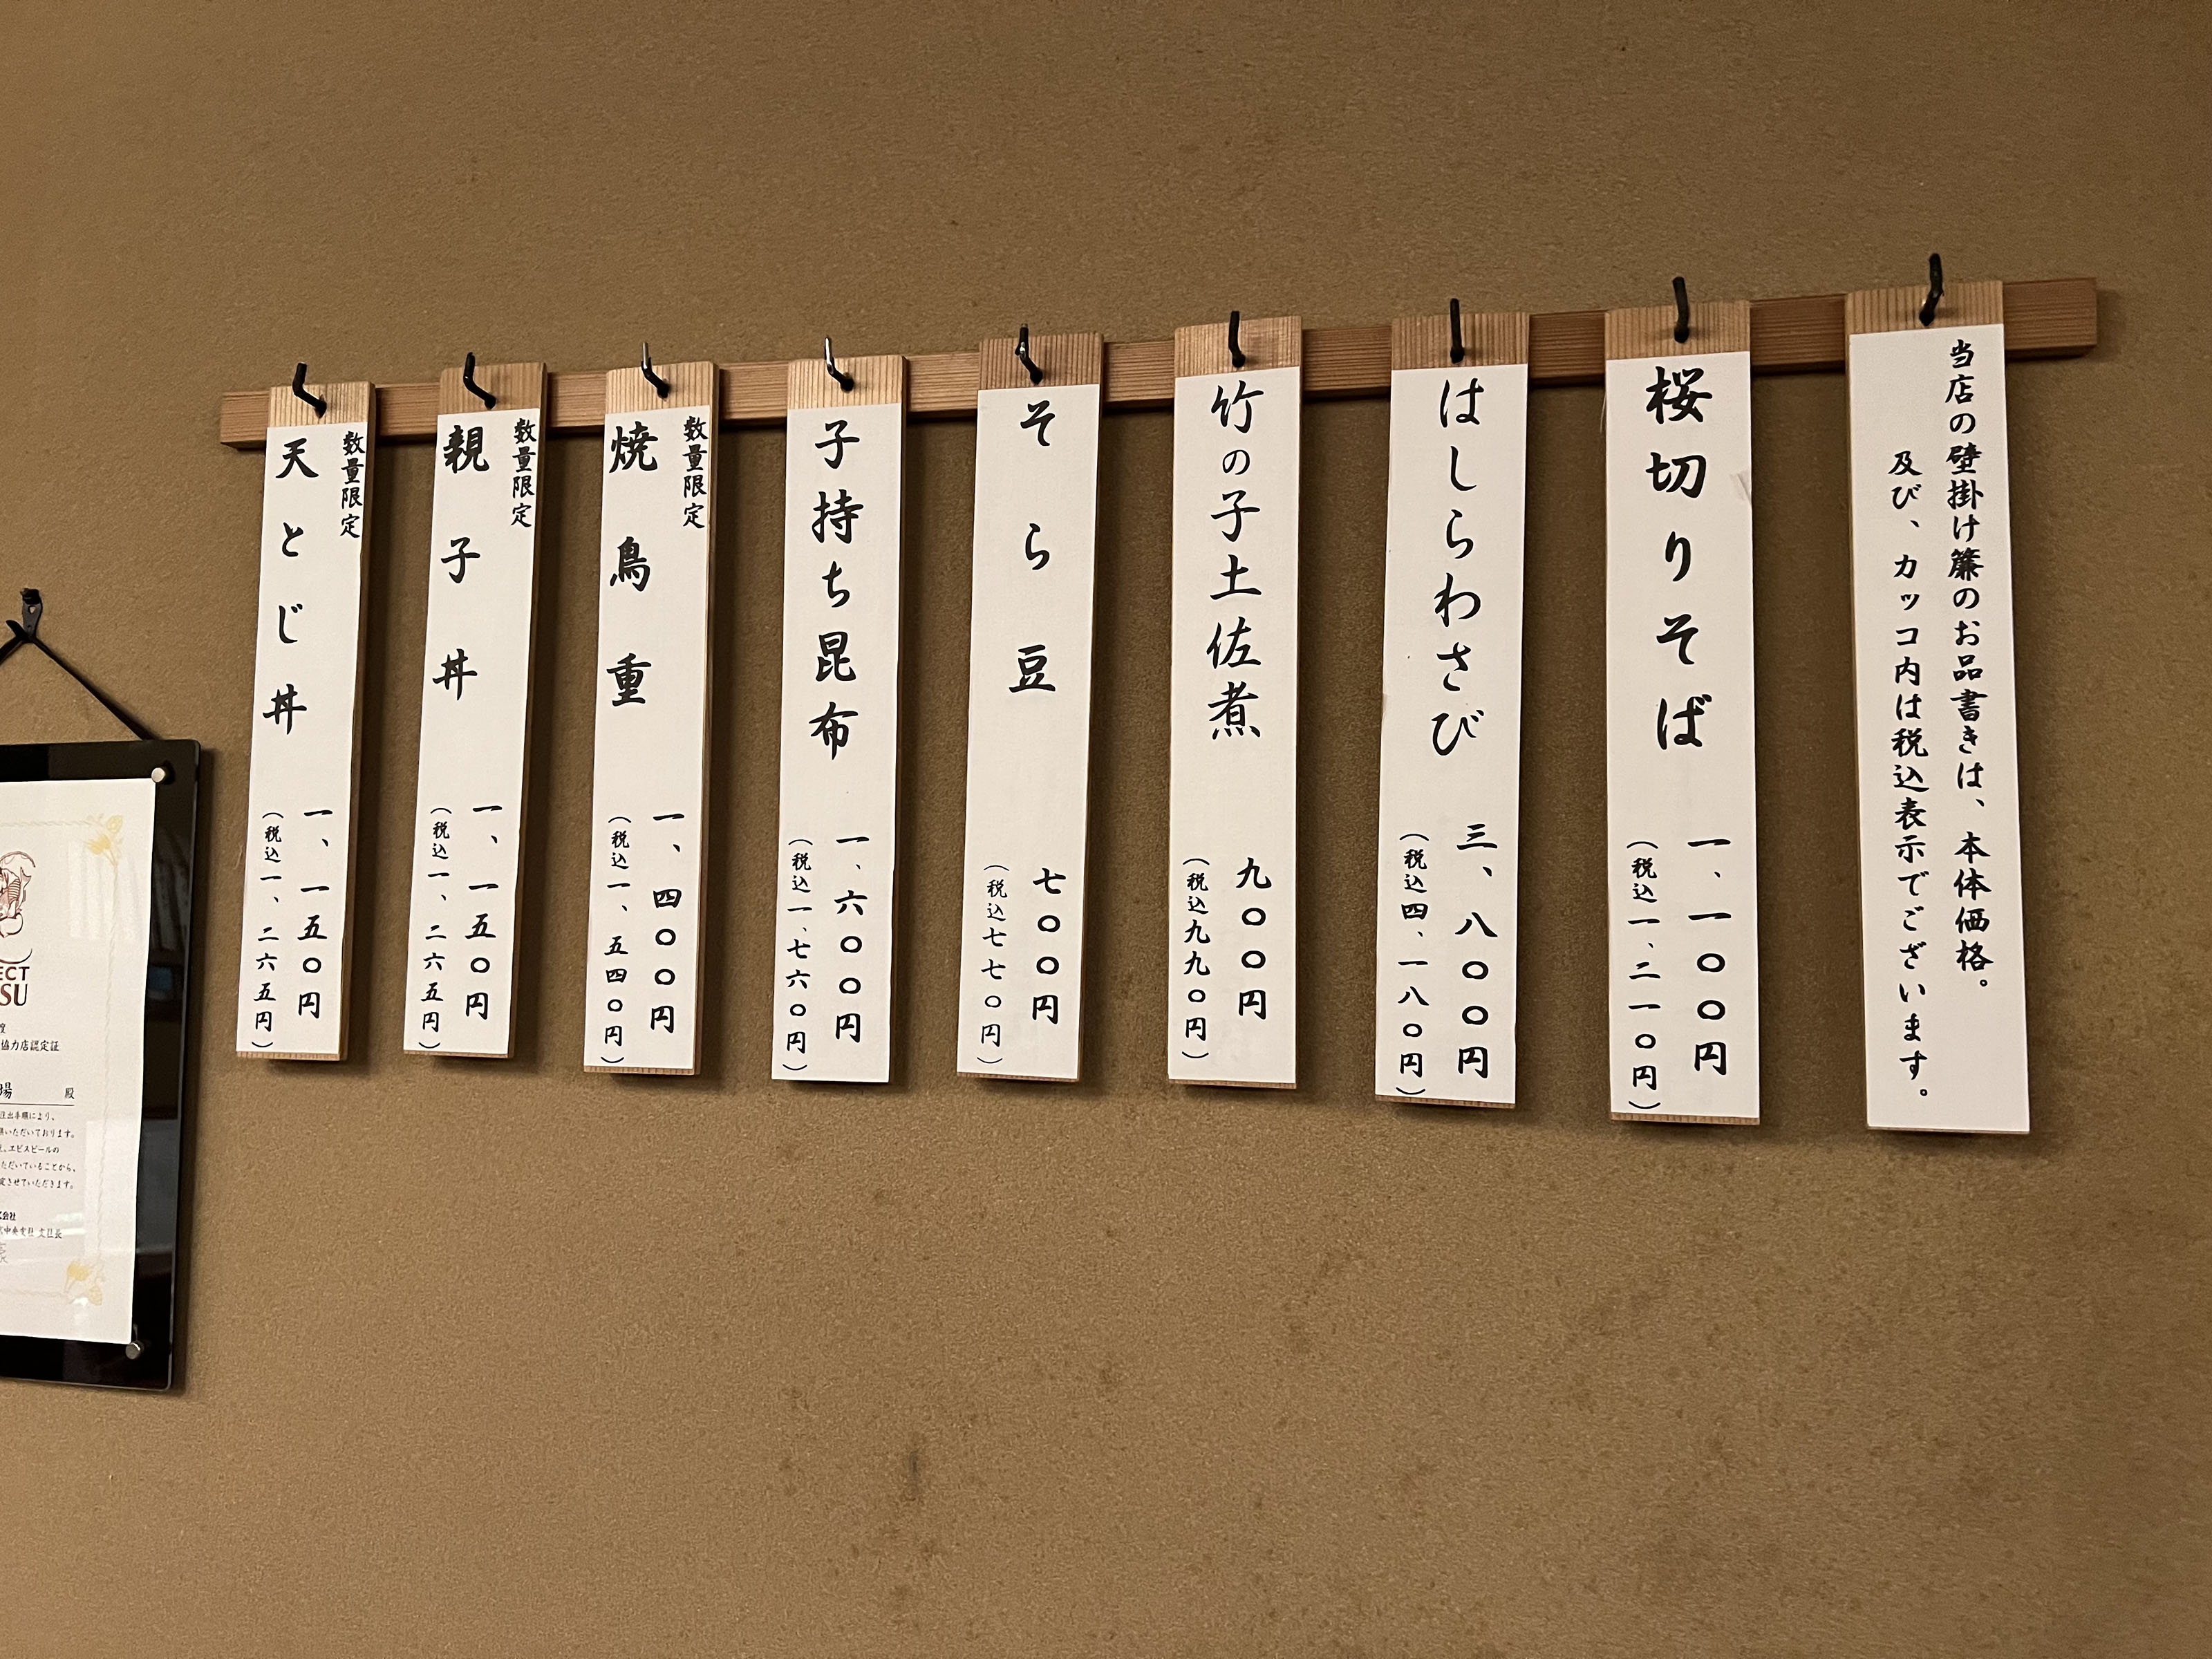 当店の壁掛け簾のお品書きは、本体価格。
及び、カッコ内は税込表示でございます。
桜切りそば
一、一〇〇円
(税込一、二一〇円)
はしらわさび
三、八〇〇円
(税込四、一八〇円)
竹の子土佐煮
九〇〇円
(税込九九〇円)
そら豆
七〇〇円
(税込七七〇円)
子持ち昆布
一、六〇〇円
(税込一、七六〇円)
数量限定
焼鳥重
一、四〇〇円
(税込一、五四〇円)
数量限定
親子丼
一、一五〇円
(税込一、二六五円)
数量限定
天とじ丼
一、一五〇円
(税込一、二六五円)
ECT
SU
協力店認定証
殿
注出手順により、
いただいております。
エビスビールの
ただいていることから、
定させていただきます。
会社
中央支社 支社長